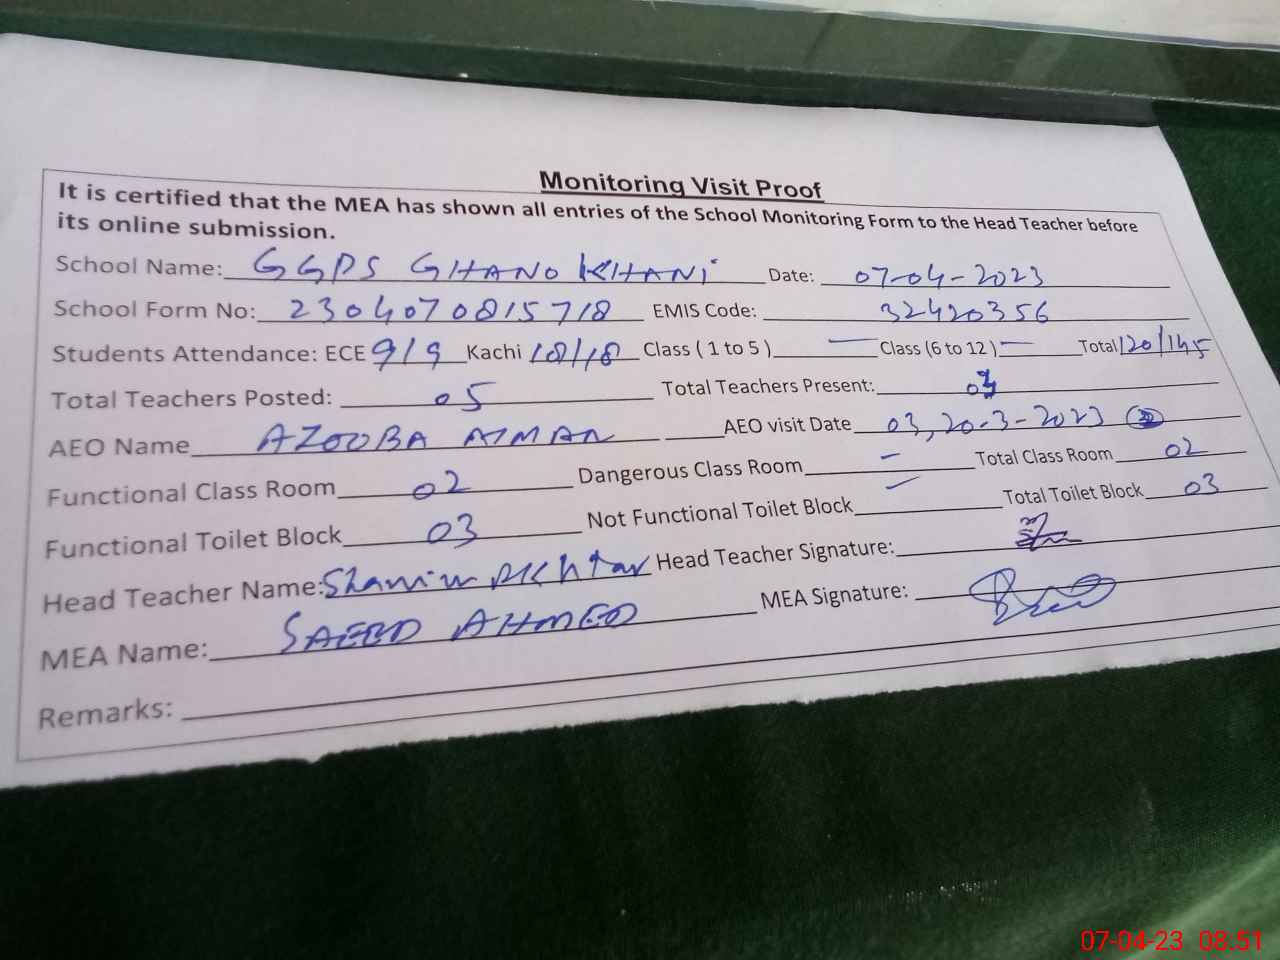 Monitoring Visit Proof
It is certified that the MEA has shown all entries of the School Monitoring Form to the Head Teacher before
its online submission.
School Name: GGPS GHANO KHANI Date: 07-04-2023
School Form No: 2304070815718 EMIS Code: 32420356
Students Attendance: ECE 9/9 Kachi 18/18 Class ( 1 to 5 ) — Class (6 to 12 ) — Total 120/145
Total Teachers Posted: 05 Total Teachers Present:
AEO Name AZOOBA AIMAN AEO visit Date 03, 20-3-2023
Functional Class Room 02 Dangerous Class Room - Total Class Room 02
Functional Toilet Block 03 Not Functional Toilet Block — Total Toilet Block 03
Head Teacher Name: Shamim Akhtar Head Teacher Signature:
MEA Name: SAEED AHMED MEA Signature:
Remarks:
07-04-23 08:51